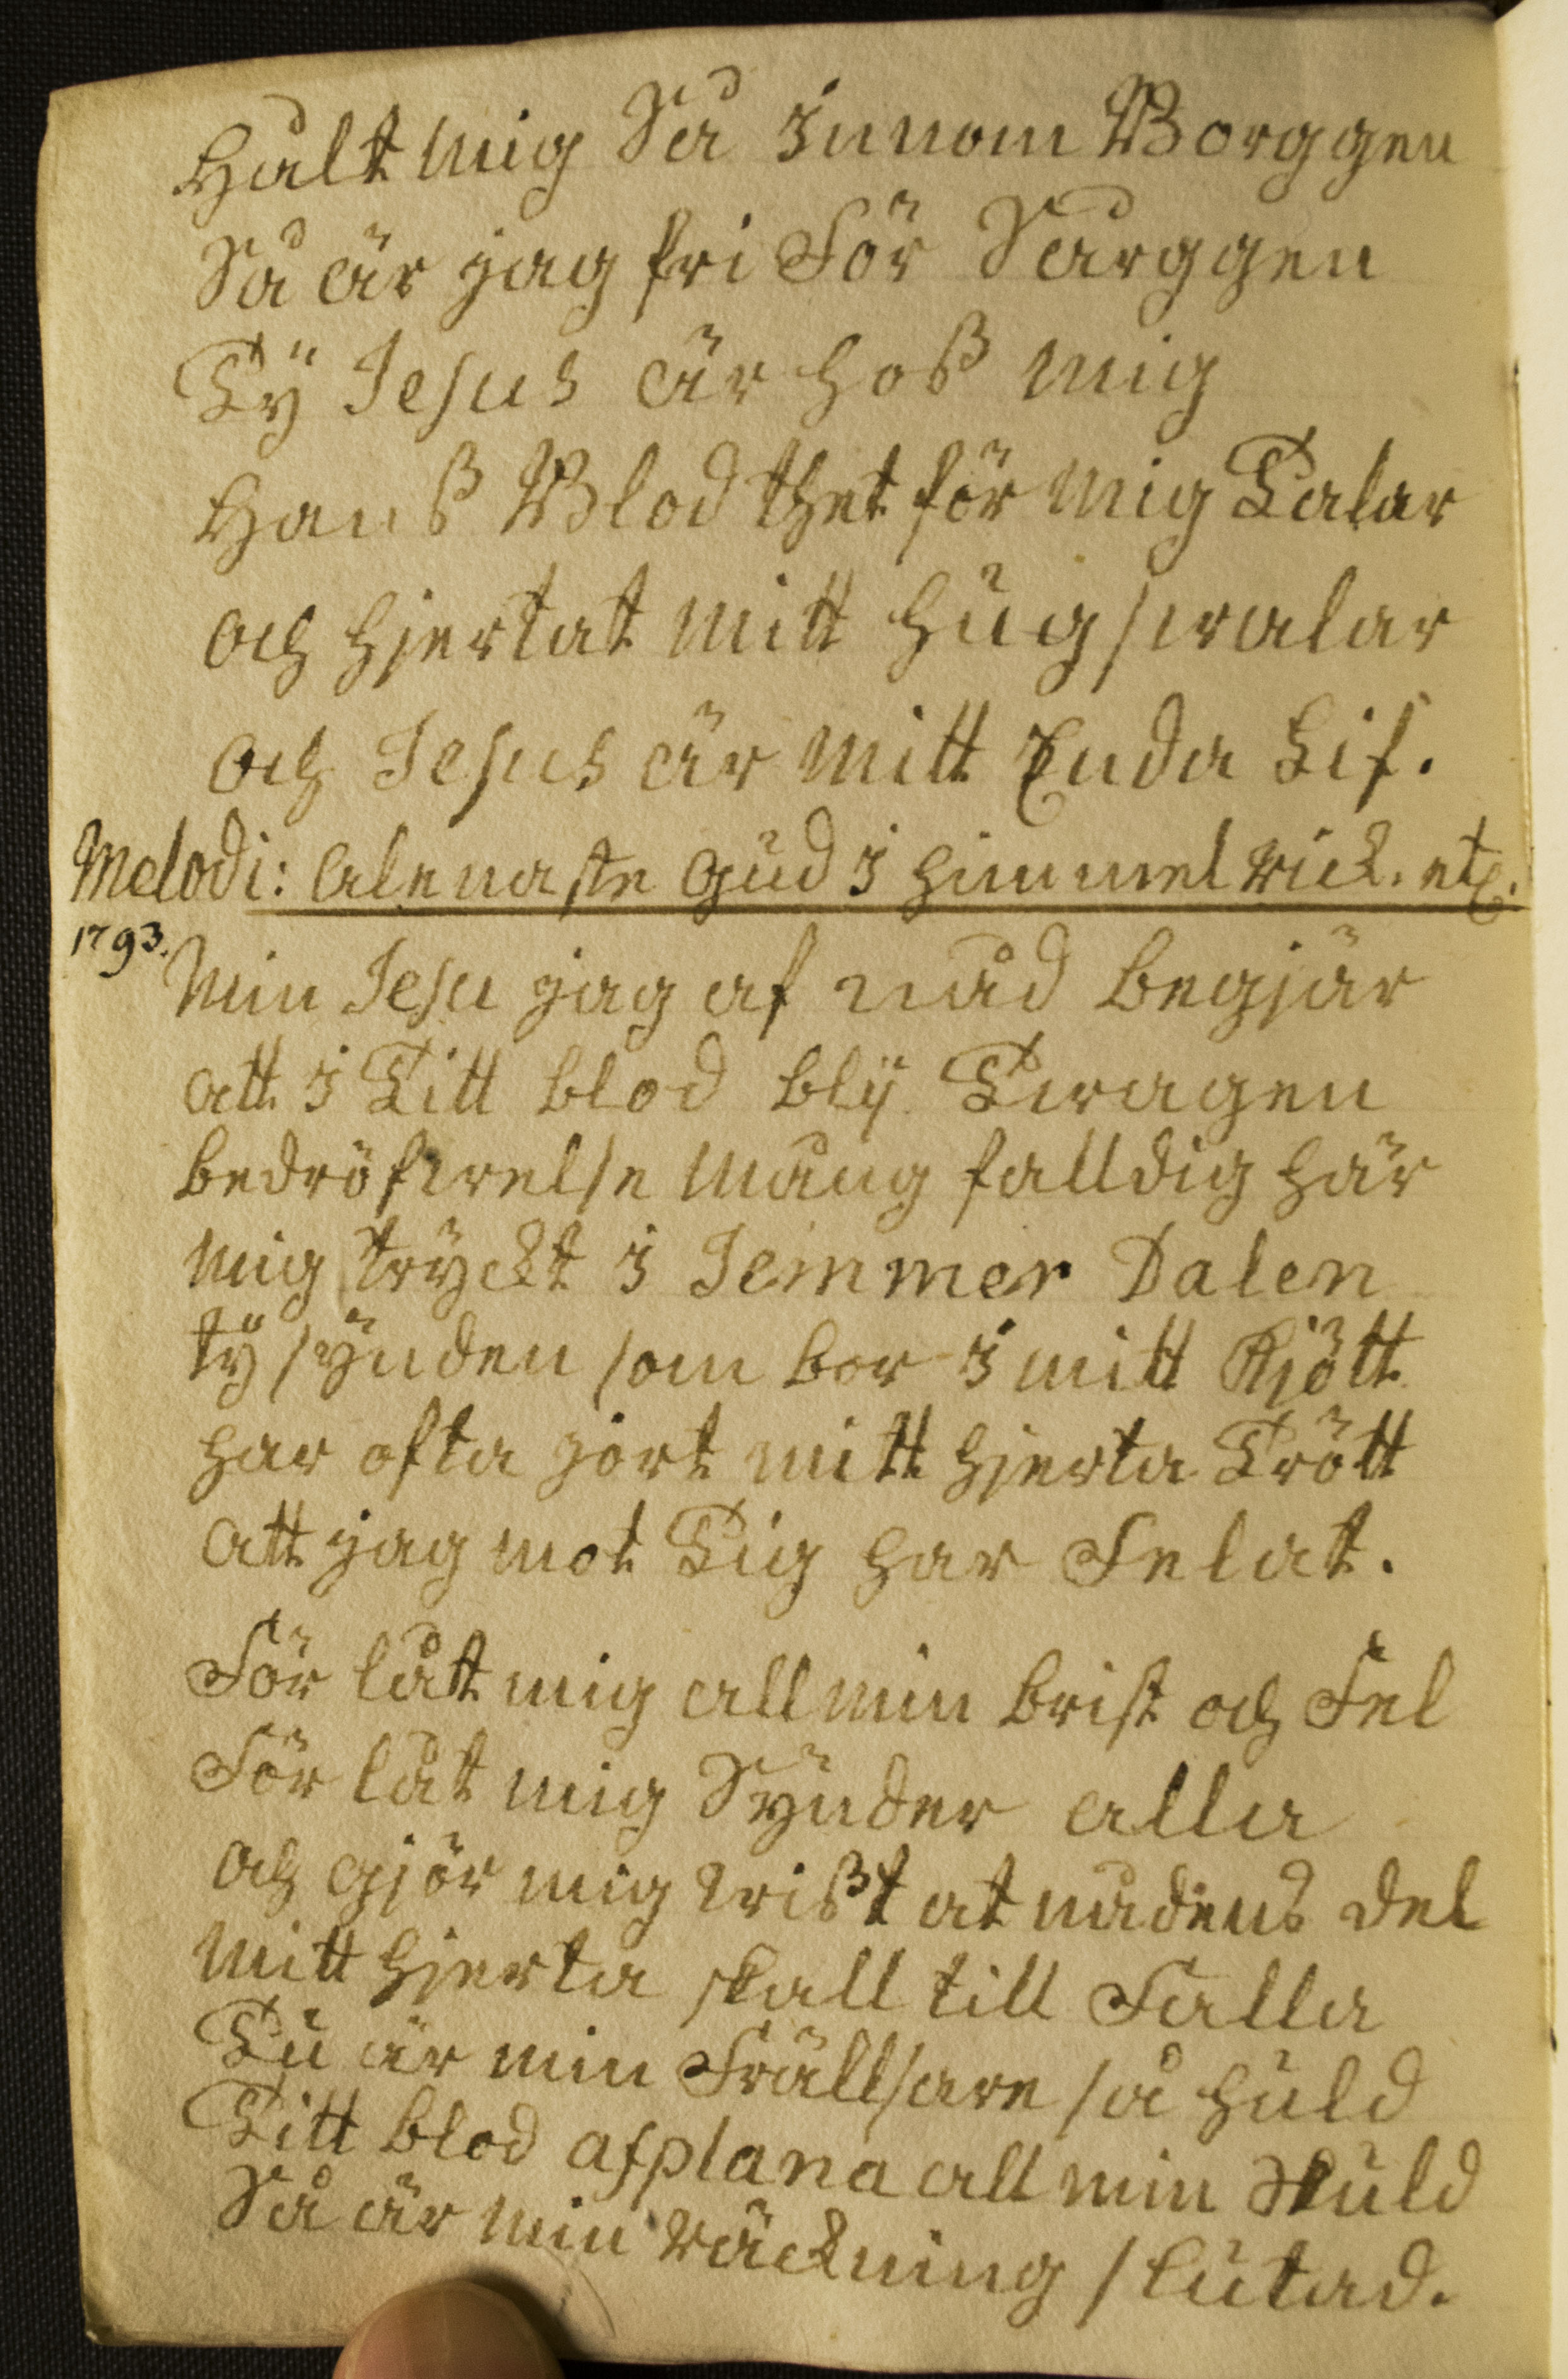 Hålt mig Så i innom Borggen
Så är jag fri För Sårggen
Tÿ Jesus är hoß mig
Hanß Blod thet för mig Talar
och hjertat mitt hugswalar
och Jesus är mitt Enda Lif.
Melodi: Alenaste Gud i himmelrick. etc.
1793.
Min Jesu jag af nåd begjär
att i Titt blod blÿ Twagen
bedröfwelse mång falldig här
mig trÿckt i Jemmer Dalen
tÿ sÿnden som bor i mitt Kjött
har ofta gjort mitt hjerta Trött
att jag mot Tig har Felat.
För lått mig all min brist och Fel
För låt mig Sÿnder alla
och gjör mig wißt at nådens del
mitt hjerta skall till Falla
Tu är min Frällsare så huld
Titt blod afplana all min Skuld
Så är min räckning slutad.